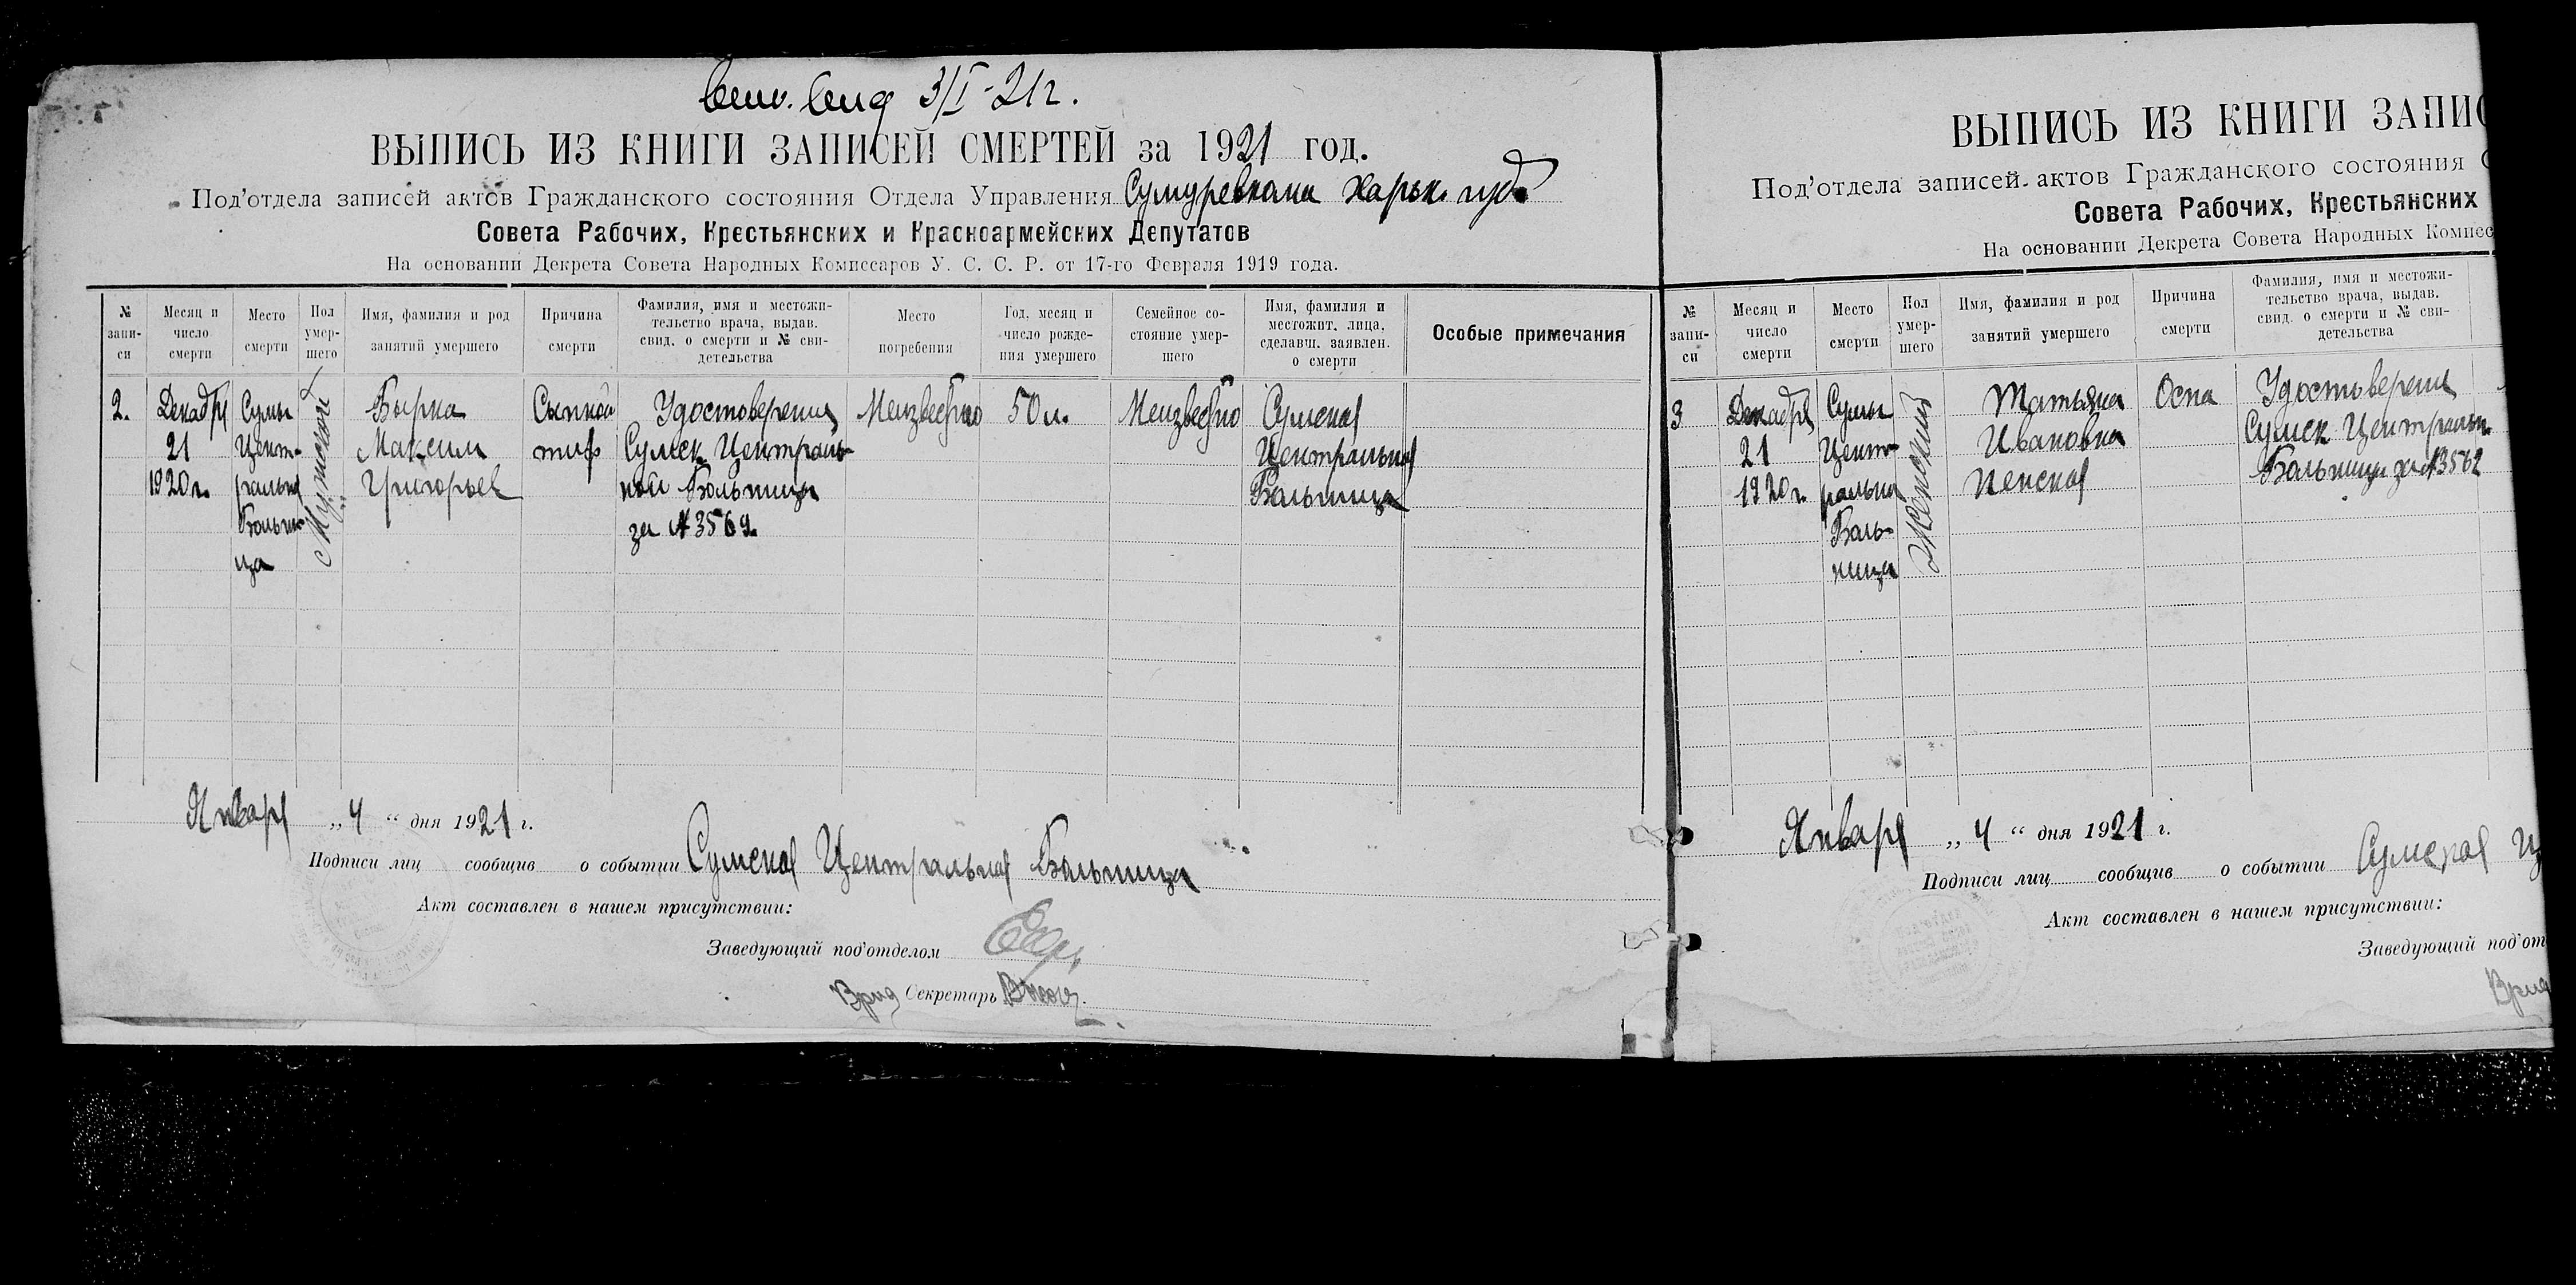 3/I-21г.
ВЫПИСЬ ИЗ КНИГИ ЗАПИСЕЙ СМЕРТЕЙ за 1921 год.
Под'отдела записей актов Гражданского состояния Отдела Управления Сумуревкома Харьк. губ.
Совета Рабочих, Крестьянских и Красноармейских Депутатов
На основании Декрета Совета Народных Комиссаров У. С. С. Р. от 17-го Февраля 1919 года.
№ запи-си
Месяц и число смерти
Место смерти
Пол умер-шего
Имя, фамилия и род занятий умершего
Причина смерти
Фамилия, имя и местожи-тельство врача, выдав. свид. о смерти и № сви-детельства
Место погребения
Год, месяц и число рожде-ния умершего
Семейное со-стояние умер-шего
Имя, фамилия и местожит. лица, сделавш. заявлен. о смерти
Особые примечания
2.
Декабря
21
1920 г.
Сумы
Цент-
ральна
Больни
ца
Мужской
Бырка
Максим
Григорьев
Сыпной
тиф
Удостоверения
Сумск. Централь-
ной Больницы
за № 3569.
Неизвестно
50 л.
Неизвестно
Сумская
Центральная
Больница
Январь „4“ дня 1921 г.
Подписи лиц сообщив о событии Сумская Центральная Больница
Акт составлен в нашем присутствии:
Заведующий под'отделом
Врид Секретарь
ВЫПИСЬ ИЗ КНИГИ ЗАПИС
Под'отдела записей актов Гражданского состояния О
Совета Рабочих, Крестьянских
На основании Декрета Совета Народных Комисс
№ запи-си
Месяц и число смерти
Место смерти
Пол умер-шего
Имя, фамилия и род занятий умершего
Причина смерти
Фамилия, имя и местожи-тельство врача, выдав. свид. о смерти и № сви-детельства
3
Декабря
21
1920 г.
Сумы
Цент-
ральна
Боль-
ница
Женский
Татьяна
Ивановна
Пенская
Оспа
Удостоверения
Сумск Центральн.
Больницы за №3562
Январь „4“ дня 1921 г.
Подписи лиц сообщив о событии Сумская Ц
Акт составлен в нашем присутствии:
Заведующий под'от
Врид